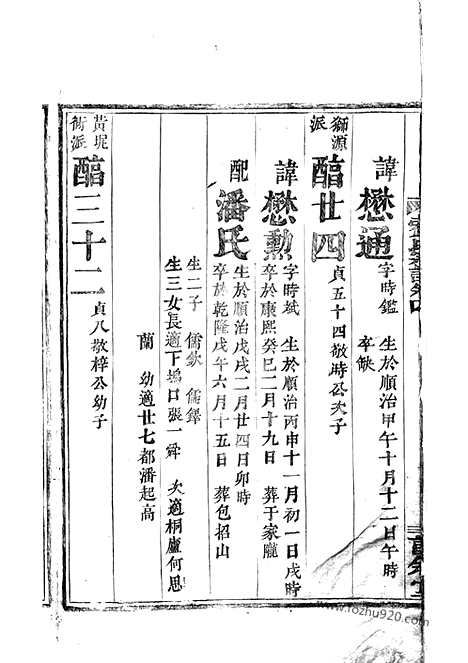 諱懋通 字時鑑 生於順治甲午十月十二日午時
卒缺
獅源派 醕廿四 貞五十四敬時公次子
諱懋勲 字時斌 生於順治丙申十一月初一日戌時
卒於康熙癸巳二月十九日 葬于家隴
配潘氏 生於順治戊戌二月廿四日卯時
卒於乾隆戊午六月十五日 葬包招山
生二子 儒欽 儒鐸
生三女長適下塢口張一舜 次適桐廬何思
蘭 幼適廿七都潘起高
黃坭衕派 醕三十二 貞八敬梓公幼子
www.fozhu920.com